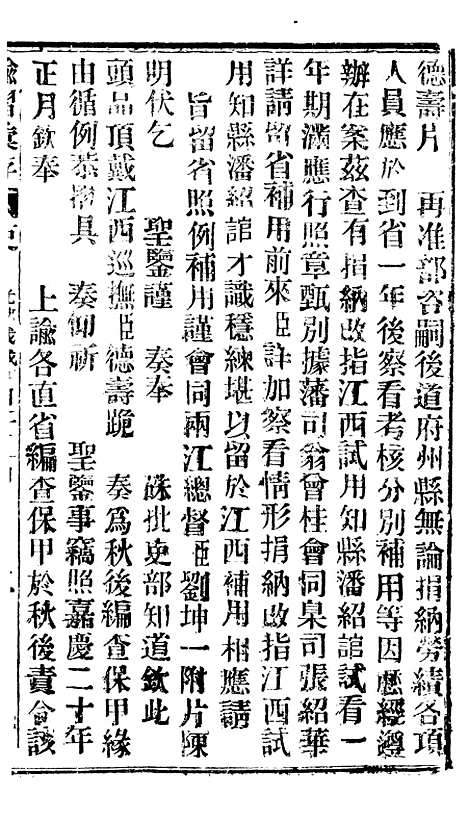 德壽片　再准部咨嗣後道府州縣無論捐納勞績各項
人員應於到省一年後察看考核分別補用等因歷經遵
辦在案茲查有捐納改指江西試用知縣潘紹誼試看一
年期滿應行照章甄別據藩司翁曾桂會同臬司張紹華
詳請留省補用前來臣詳加察看情形捐納改指江西試
用知縣潘紹誼才識穩練堪以留於江西補用相應請
旨留省照例補用謹會同兩江總督臣劉坤一附片陳
明伏乞　聖鑒謹　奏奉　硃批吏部知道欽此
頭品頂戴江西巡撫臣德壽跪　奏爲秋後編查保甲緣
由循例恭摺具　奏仰祈　聖鑒事竊照嘉慶二十年
正月欽奉　上諭各直省編查保甲於秋後責令該